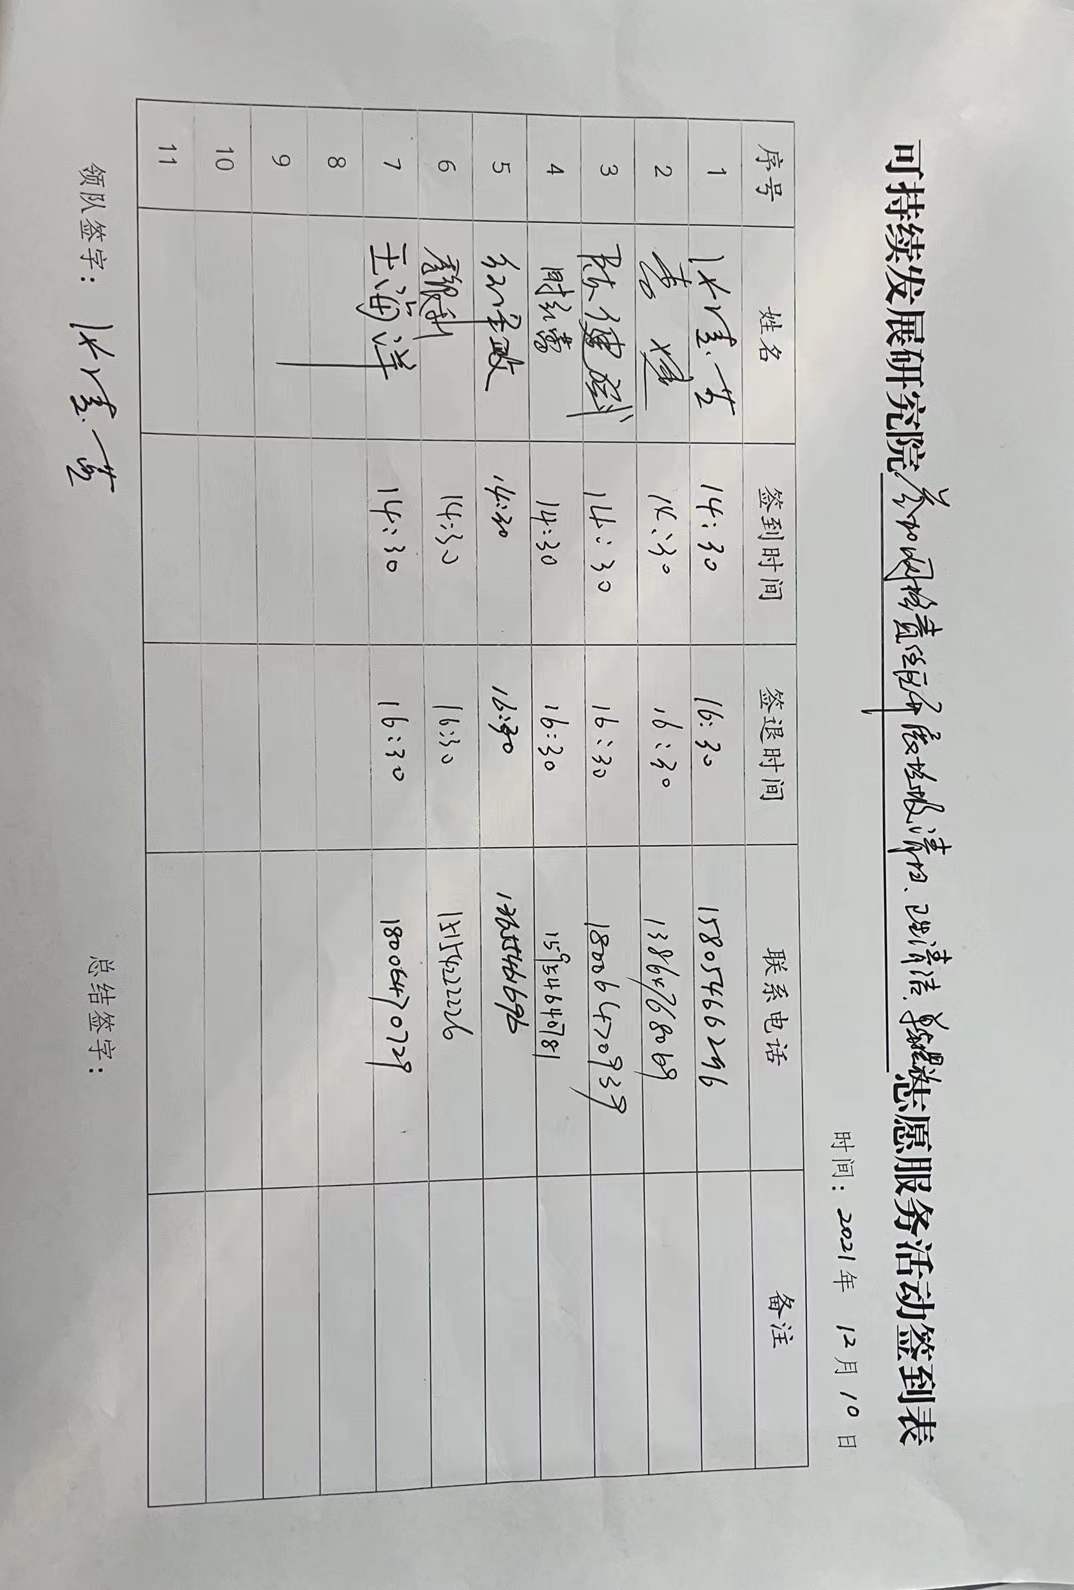 可持续发展研究院参加网格责任田废垃圾清扫、卫生清洁、志愿服务活动签到表
时间：2021年 12月10日
序号 姓名 签到时间 签退时间 联系电话 备注
1 14:30 16:30 15805466296
2 14:30 16:30 13864768069
3 陈健 14:30 16:30 18006470939
4 14:30 16:30 15954640781
5 14:30 16:30
6 14:30 16:30 15154222226
7 王海洋 14:30 16:30 18006470729
8
9
10
11
领队签字： 总结签字：